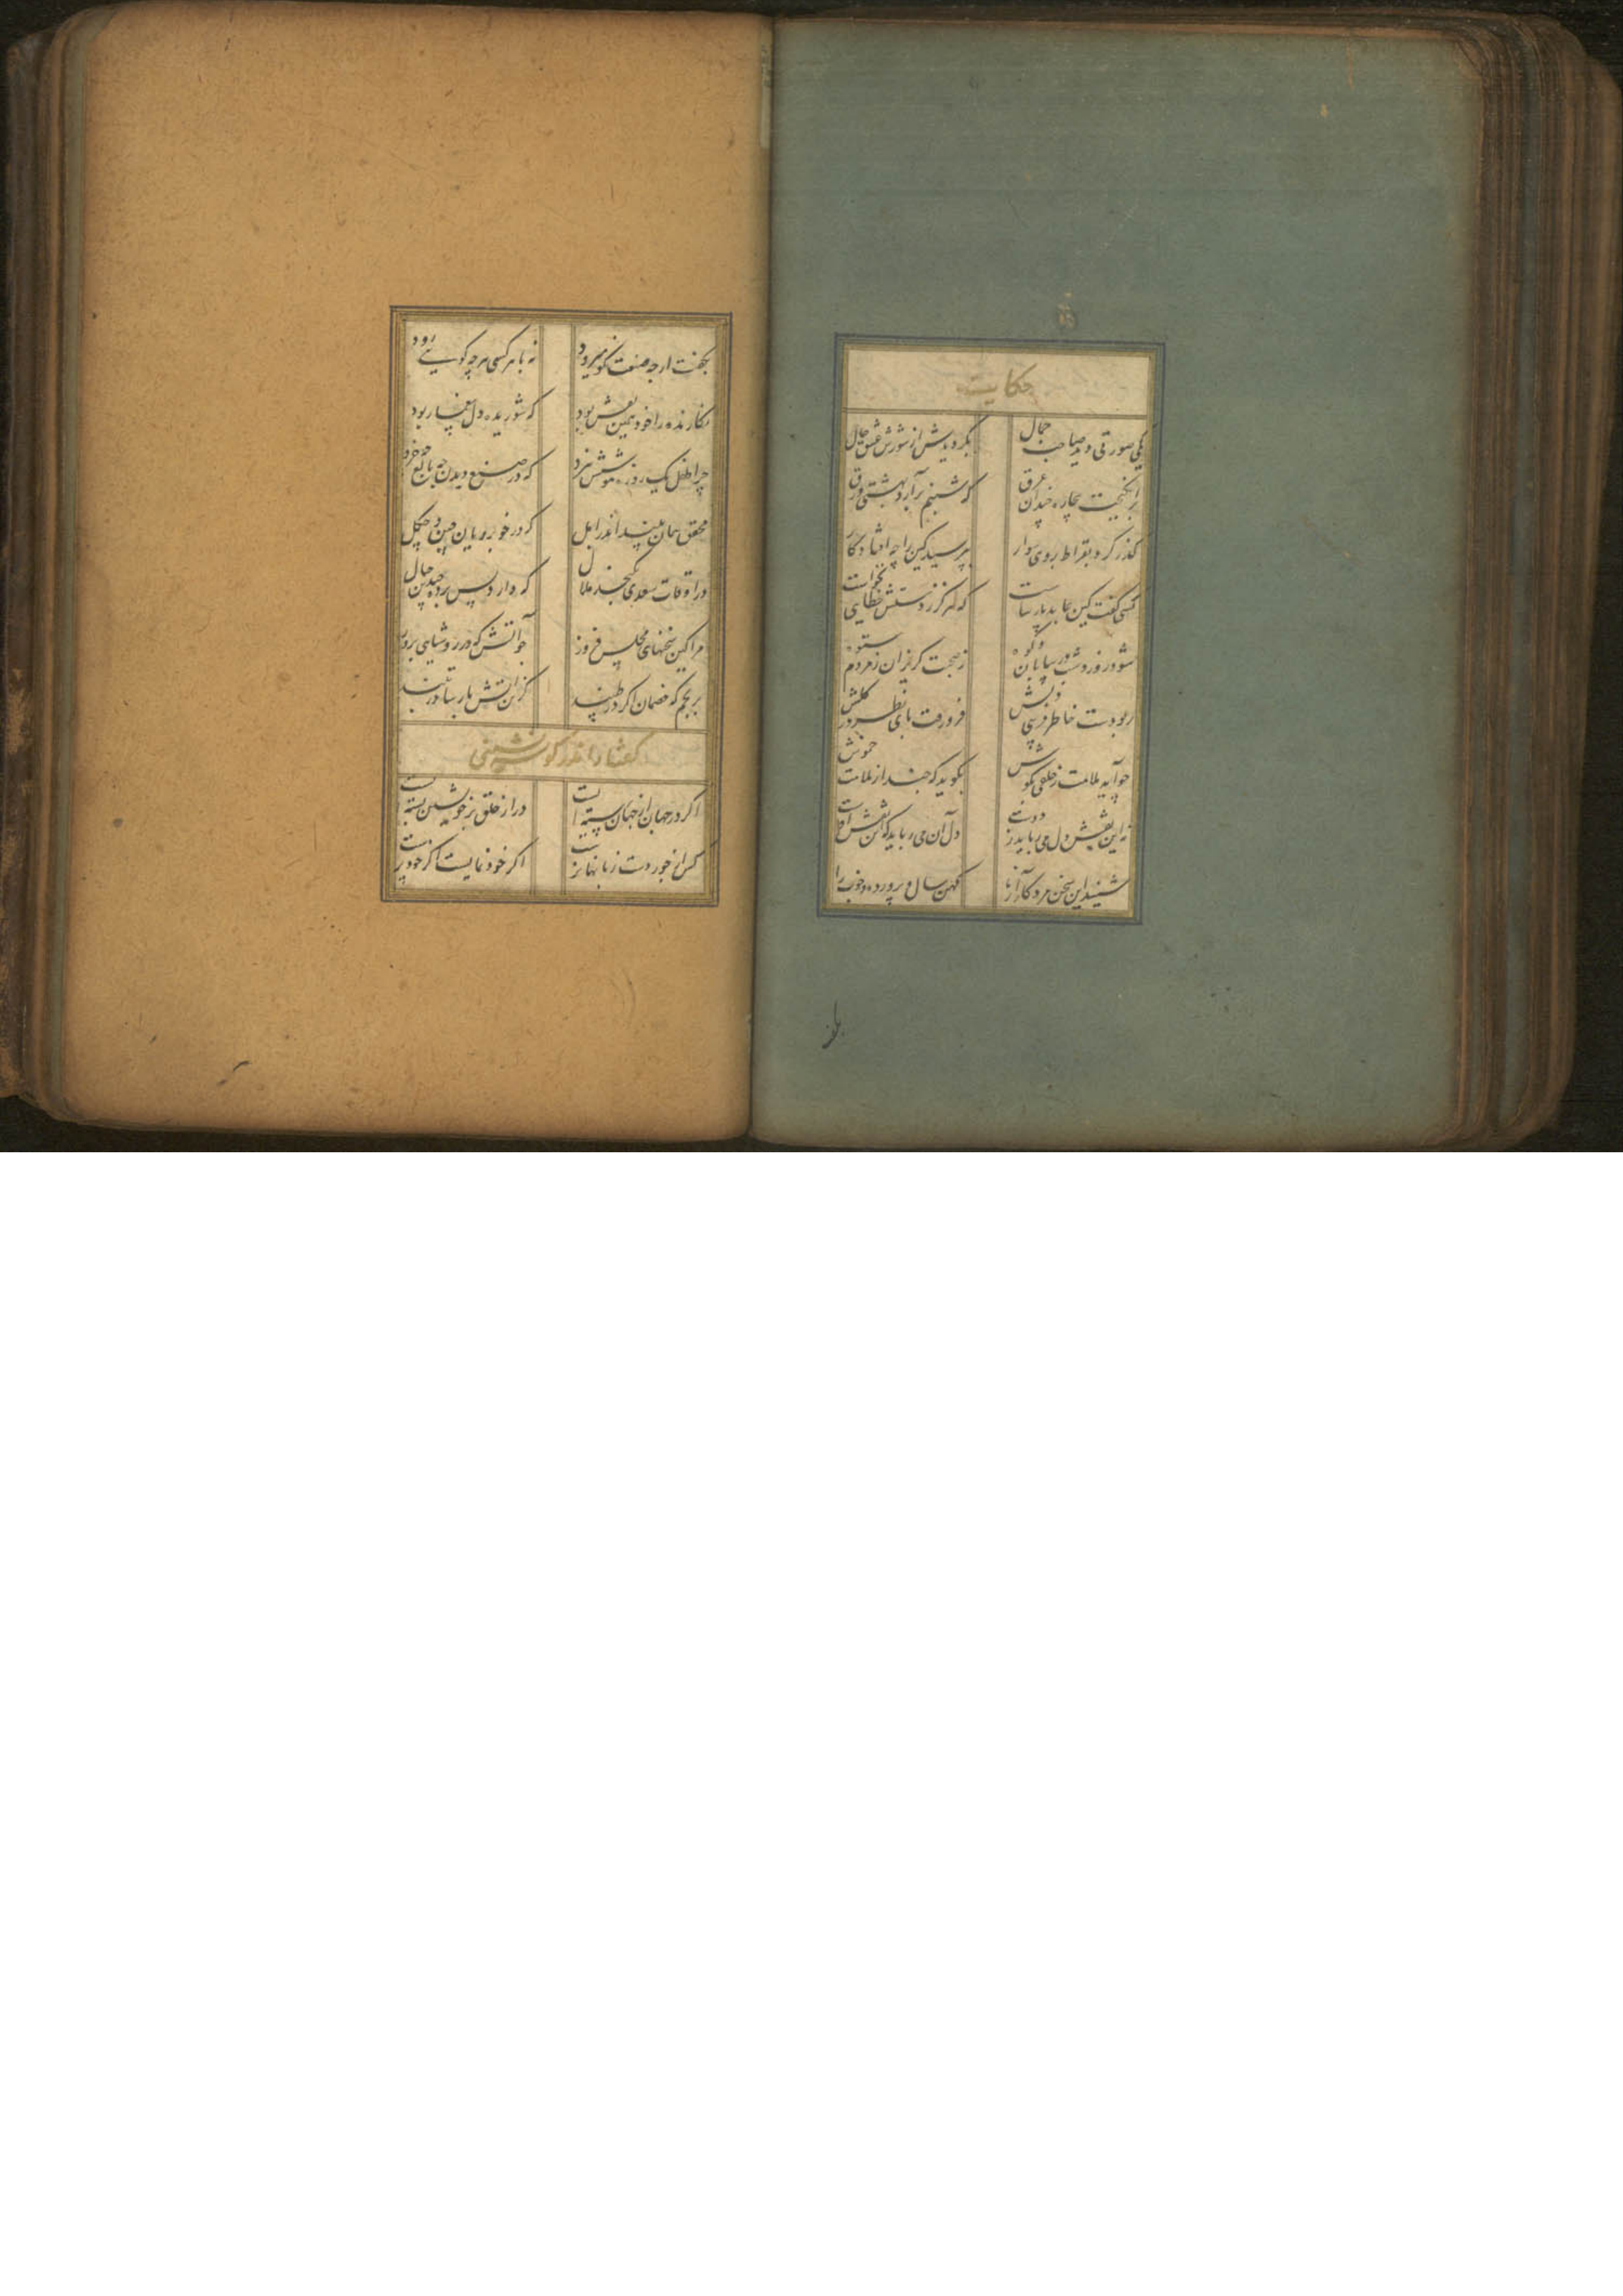 حکایت
یکی صورتی دید صاحب جمال
بگردیدش از شورش عشق حال
برانگیخت بیچاره چندان عرق
که شبنم برآرد بهشتی ورق
گذر کرد بقراط بروی سوار
بپرسید کین را چه افتاد کار
کسی گفت کین عابد پارساست
که هرگز ز دستش خطایی نخواست
شود روز و شب در بیابان و کوه
ز صحبت گریزان ز مردم ستوه
ربودست خاطر فریبی دلش
فرو رفت پای نظر در گلش
چو آید ملامت ز خلقی بگوش
بگوید که چند از ملامت خموش
نه این نقش دل می رباید ز دست
دل آن می رباید که این نقش بست
شنید این سخن مرد کار آزما
کهن سال و پرورده و خوب را
بلفت
بگفت ار چه صنعت نکو میرود
نه با هر کسی هر چه گویی رود
نگارنده را خود همین نقش بود
که شوریده دل بیغما ربود
چرا طفل یک روزه هوشش نبرد
که در صنع دیدن چه بالغ چه خرد
محقق همان بیند اندر ابل
که در خوبرویان چین و چگل
در اوقات سعدی نگنجد ملال
که دارد پس پرده چندین جمال
مرا کین سخنهای مجلس فروز
چو آتش که در روشنایی بروز
نرنجم که خصمان اگر در طپند
کزین آتش پارسی در تبند
گفتار اندر گوشه نشینی
اگر در جهان از جهان رسته ایست
در از خلق بر خویشتن بسته ایست
کس از جور دست زبانها نرست
اگر خودنمایست اگر خودپرست